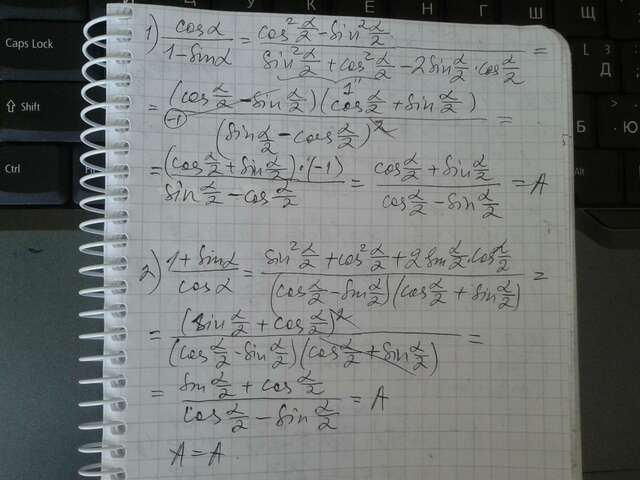 Caps Lock
Shift
Ctrl
1) cosα/(1-sinα) = (cos²α/2 - sin²α/2)/(sin²α/2 + cos²α/2 - 2sinα/2·cosα/2) =
1
= (cosα/2 - sinα/2)(cosα/2 + sinα/2)/(sinα/2 - cosα/2)² =
-1
= (cosα/2 + sinα/2)·(-1)/(sinα/2 - cosα/2) = (cosα/2 + sinα/2)/(cosα/2 - sinα/2) = A
2) (1+sinα)/cosα = (sin²α/2 + cos²α/2 + 2sinα/2·cosα/2)/((cosα/2 - sinα/2)(cosα/2 + sinα/2)) =
= (sinα/2 + cosα/2)²/((cosα/2 - sinα/2)(cosα/2 + sinα/2)) =
= (sinα/2 + cosα/2)/(cosα/2 - sinα/2) = A
A = A
Д
Б
Ю